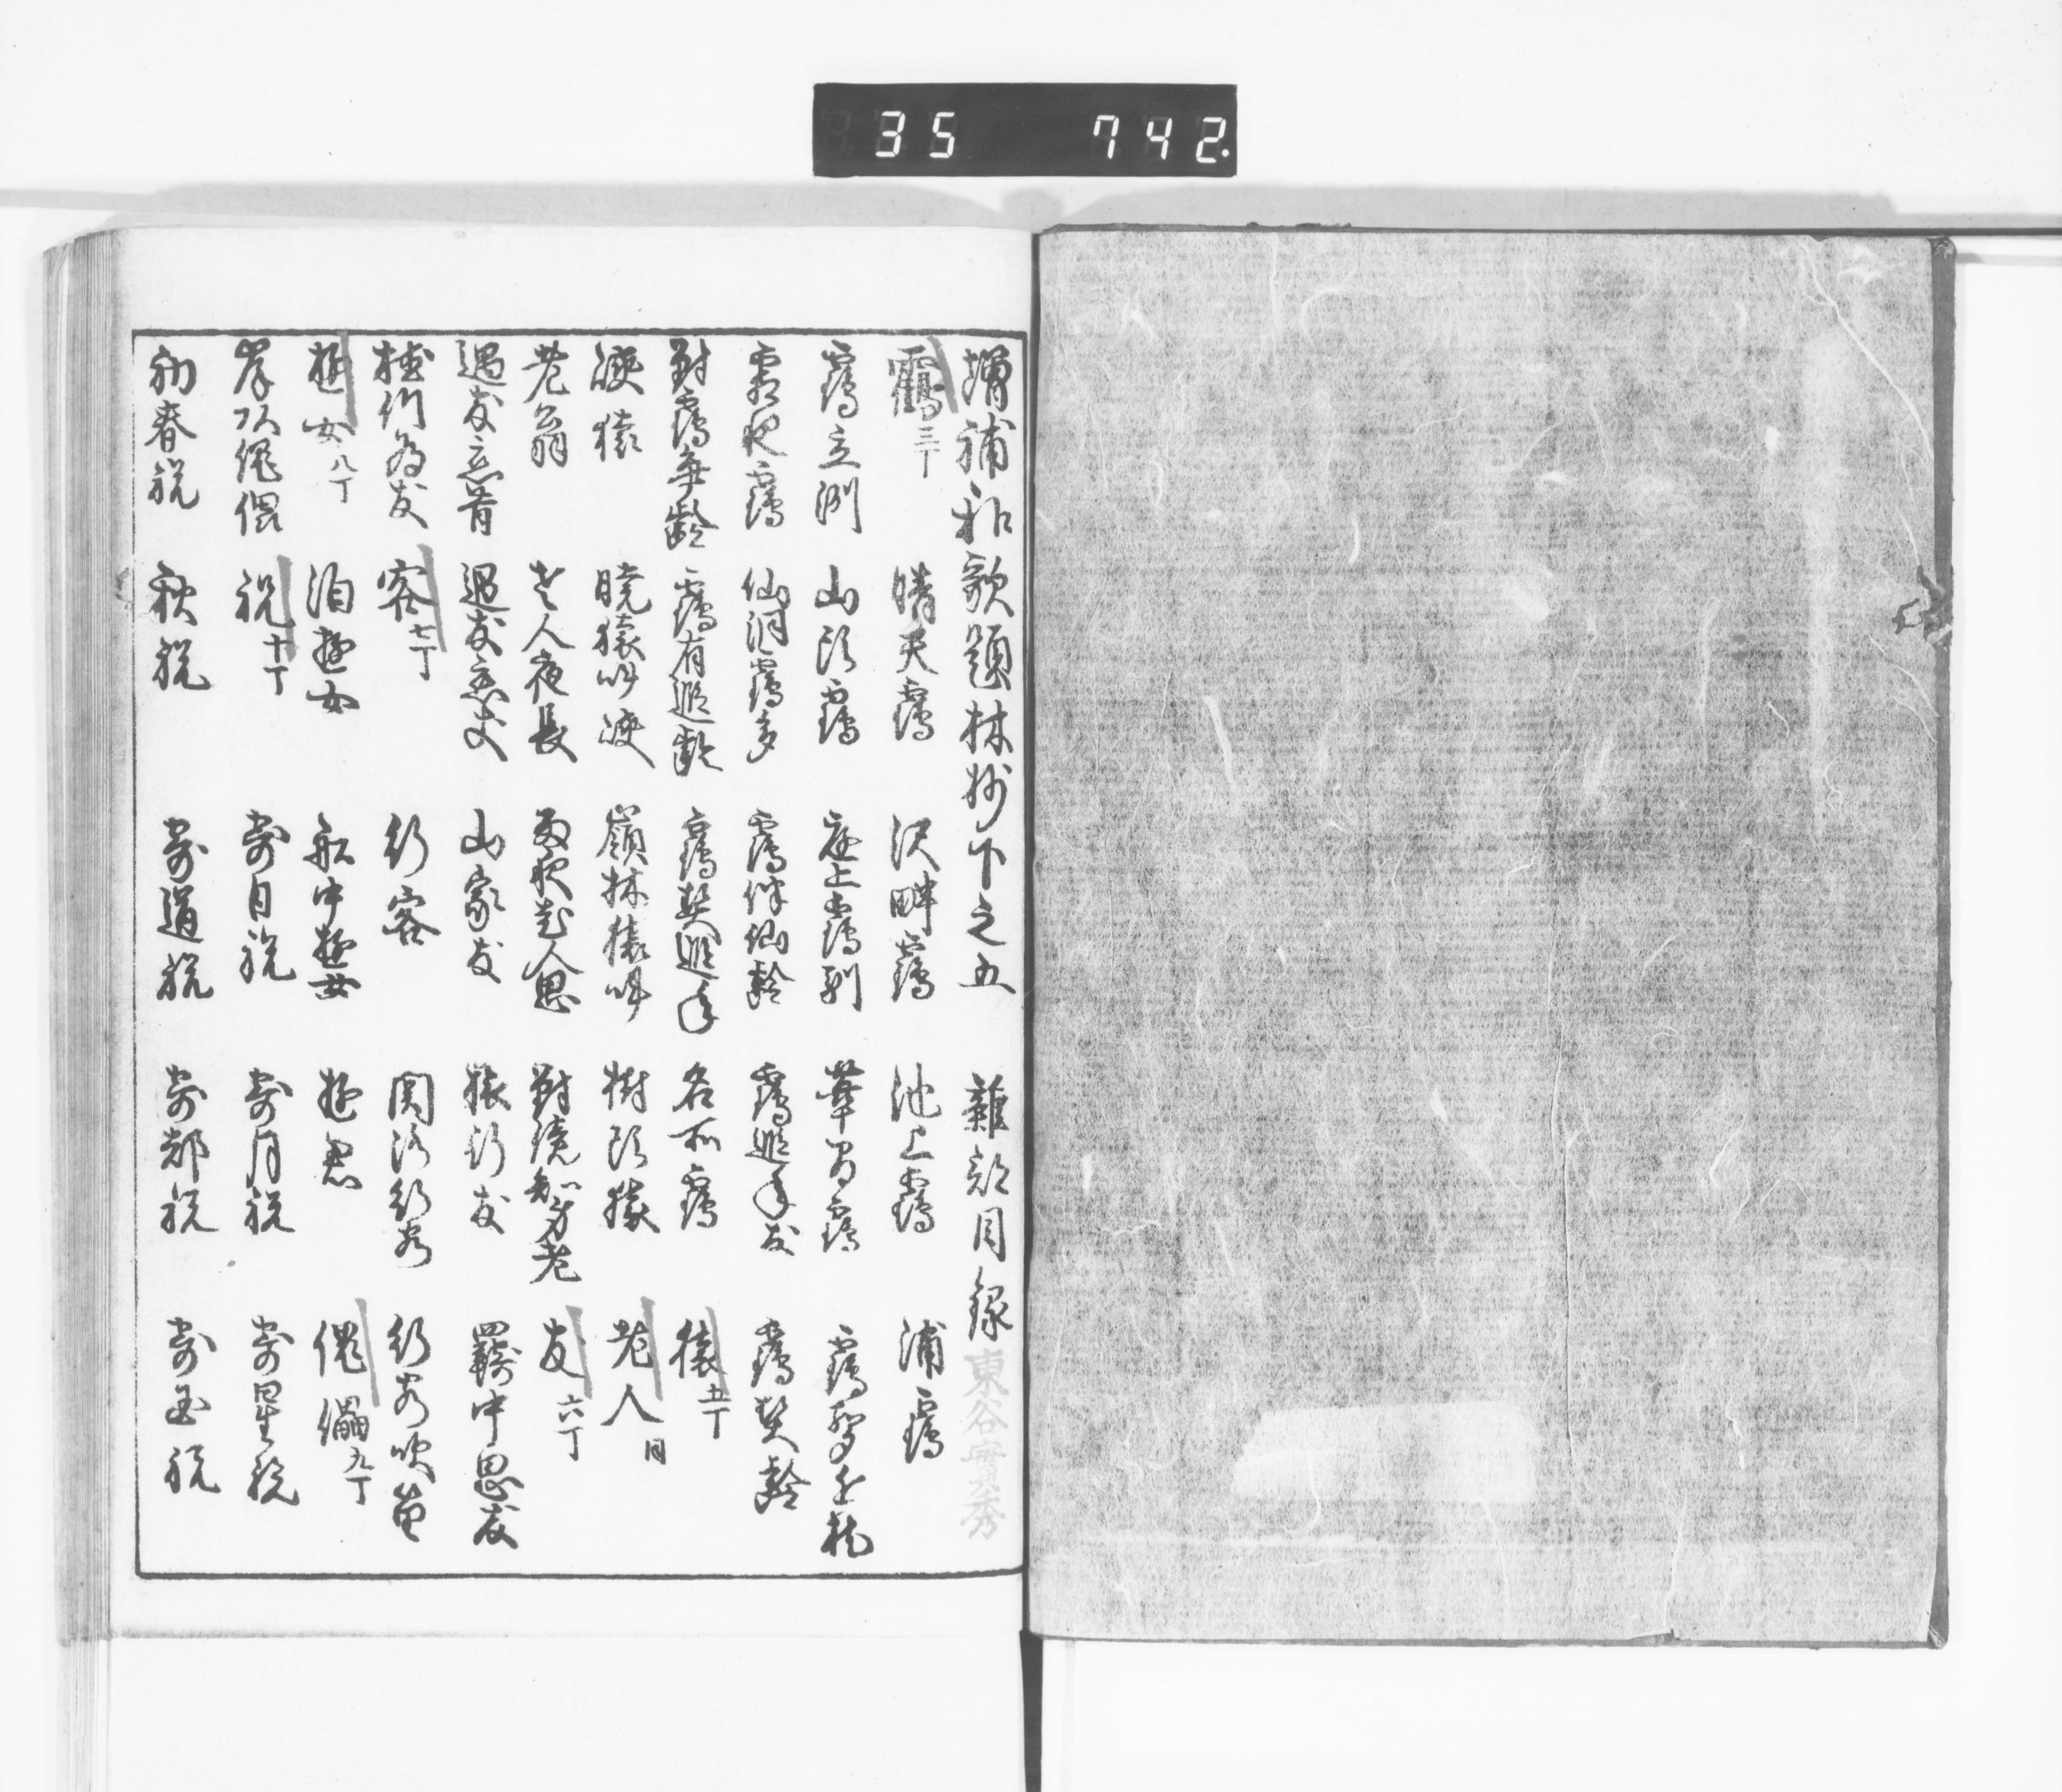 35 742
増補和歌題林抄下之五 雑部目録 東谷 秀
鶴三丁 晴天鶴 沢畔鶴 池上鶴 浦鶴
鶴立洲 山頭鶴 庭上鶴列 華間鶴
霜夜鶴 仙洞鶴多 鶴伴仙齢 鶴遐年友 鶴契齢
対鶴争齢 鶴有遐齢 鶴契遐年 名所鶴 猿五丁
峡猿 暁猿叫峡 嶺林猿叫 樹頭猿 老人同
老翁 老人夜長 対鏡知身老 友六丁
遇友忘昔 遇友恋友 山家友 旅行友 羇中思友
植竹為友 客七丁 行客 関路行客 行客吹笛
遊女八丁 泊遊女 船中遊女 遊君 傀儡九丁
岸頭傀儡 祝十丁 寄日祝 寄月祝 寄星祝
初春祝 秋祝 寄道祝 寄都祝 寄国祝